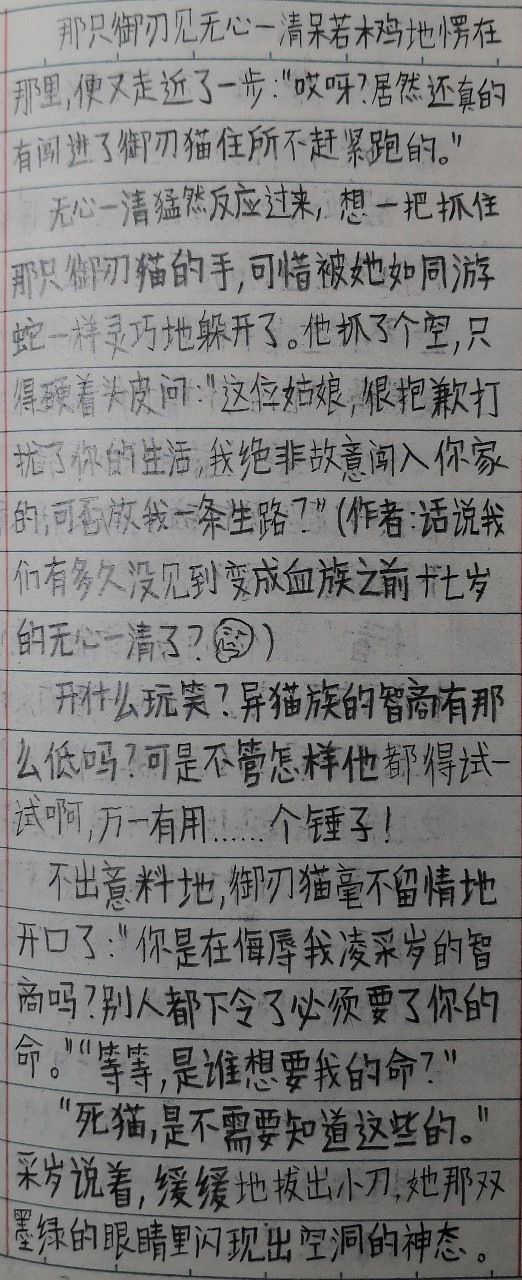 那只御刃见无心一清呆若木鸡地愣在
那里,便又走近了一步:"哎呀?居然还真的
有闯进了御刃猫住所不赶紧跑的。"
无心一清猛然反应过来,想一把抓住
那只御刃猫的手,可惜被她如同游
蛇一样灵巧地躲开了。他抓了个空,只
得硬着头皮问:"这位姑娘,很抱歉打
扰了你的生活,我绝非故意闯入你家
的,可否放我一条生路?"(作者:话说我
们有多久没见到变成血族之前十七岁
的无心一清了?)
开什么玩笑?异猫族的智商有那
么低吗?可是不管怎样他都得试一
试啊,万一有用……个锤子!
不出意料地,御刃猫毫不留情地
开口了:"你是在侮辱我凌采岁的智
商吗?别人都下令了必须要了你的
命。""等等,是谁想要我的命?"
"死猫,是不需要知道这些的。"
采岁说着,缓缓地拔出小刀,她那双
墨绿的眼睛里闪现出空洞的神态。